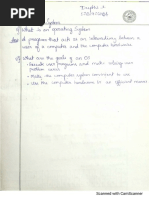 Chapter-1
Operating System
1) What is an operating System
Ans A program that acts as an intermediary between a
user of a computer and the computer hardware
2) What are the goals of an OS
- Execute user programs and make solving user
problem easier
- Make the computer system convenient to use
- Use the computer hardware in an efficient manner
Scanned with CamScanner